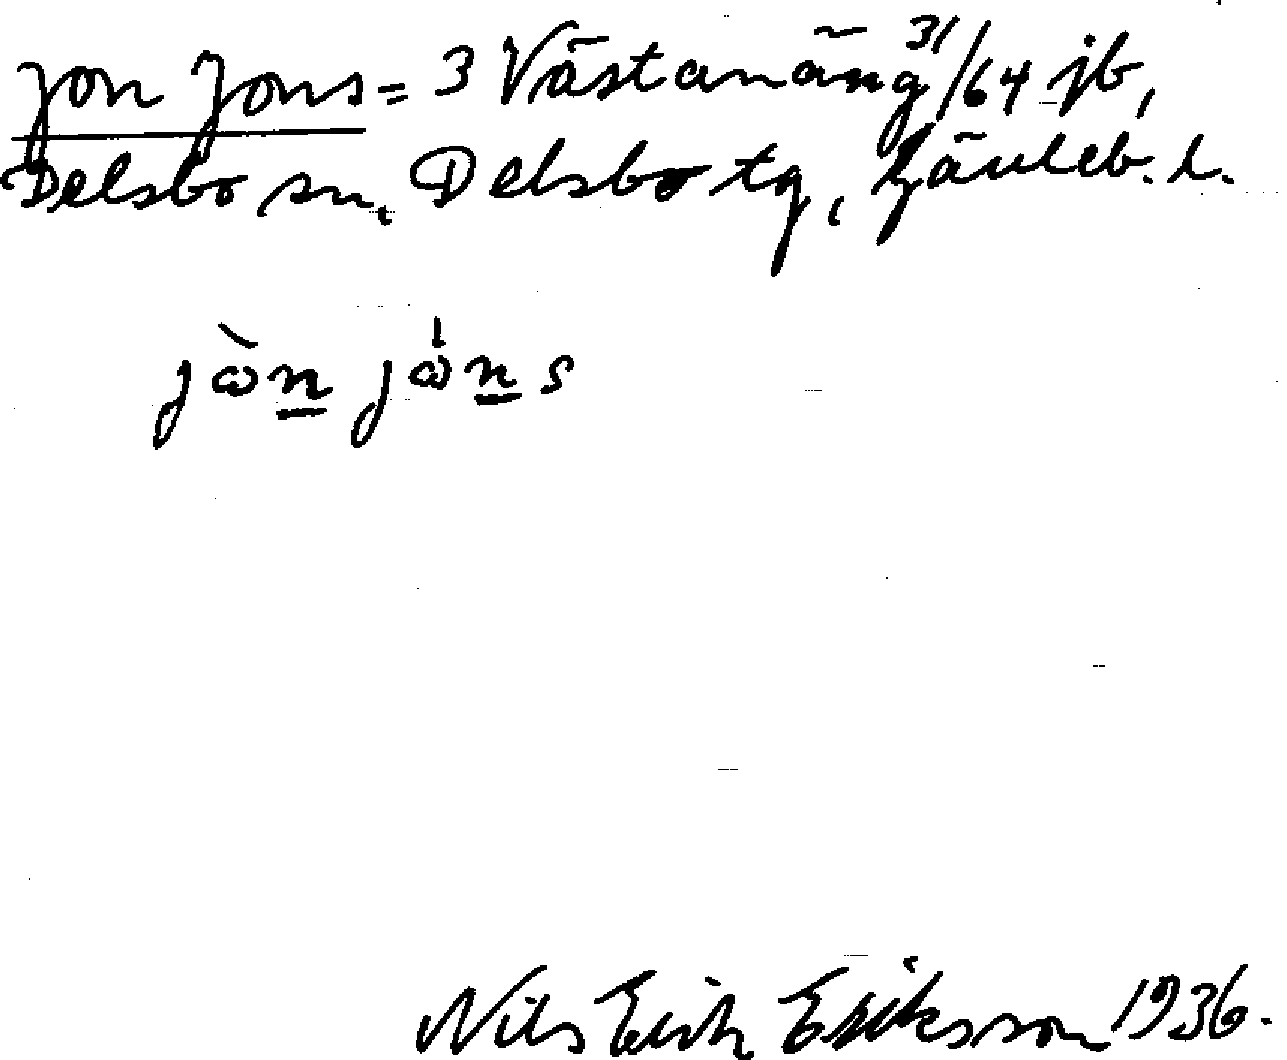 Jon Jons = 3 Västanäng 31/64 jb,
Delsbo sn, Delsbo tg, Gävleb. l.
jὼn jώn s
Nils Erik Eriksson 1936.